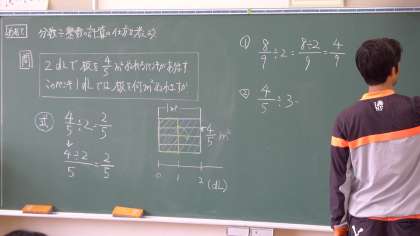 めあて 分数÷整数の計算の仕方を考えよう
問
2dLで板を4/5m²ぬれるペンキがあります
このペンキ1dLでは板を何m²ぬれますか
式 4/5÷2=2/5
↓
4÷2/5=2/5
1m
4/5 m²
0 1 2 (dL)
① 8/9÷2=8÷2/9=4/9
② 4/5÷3